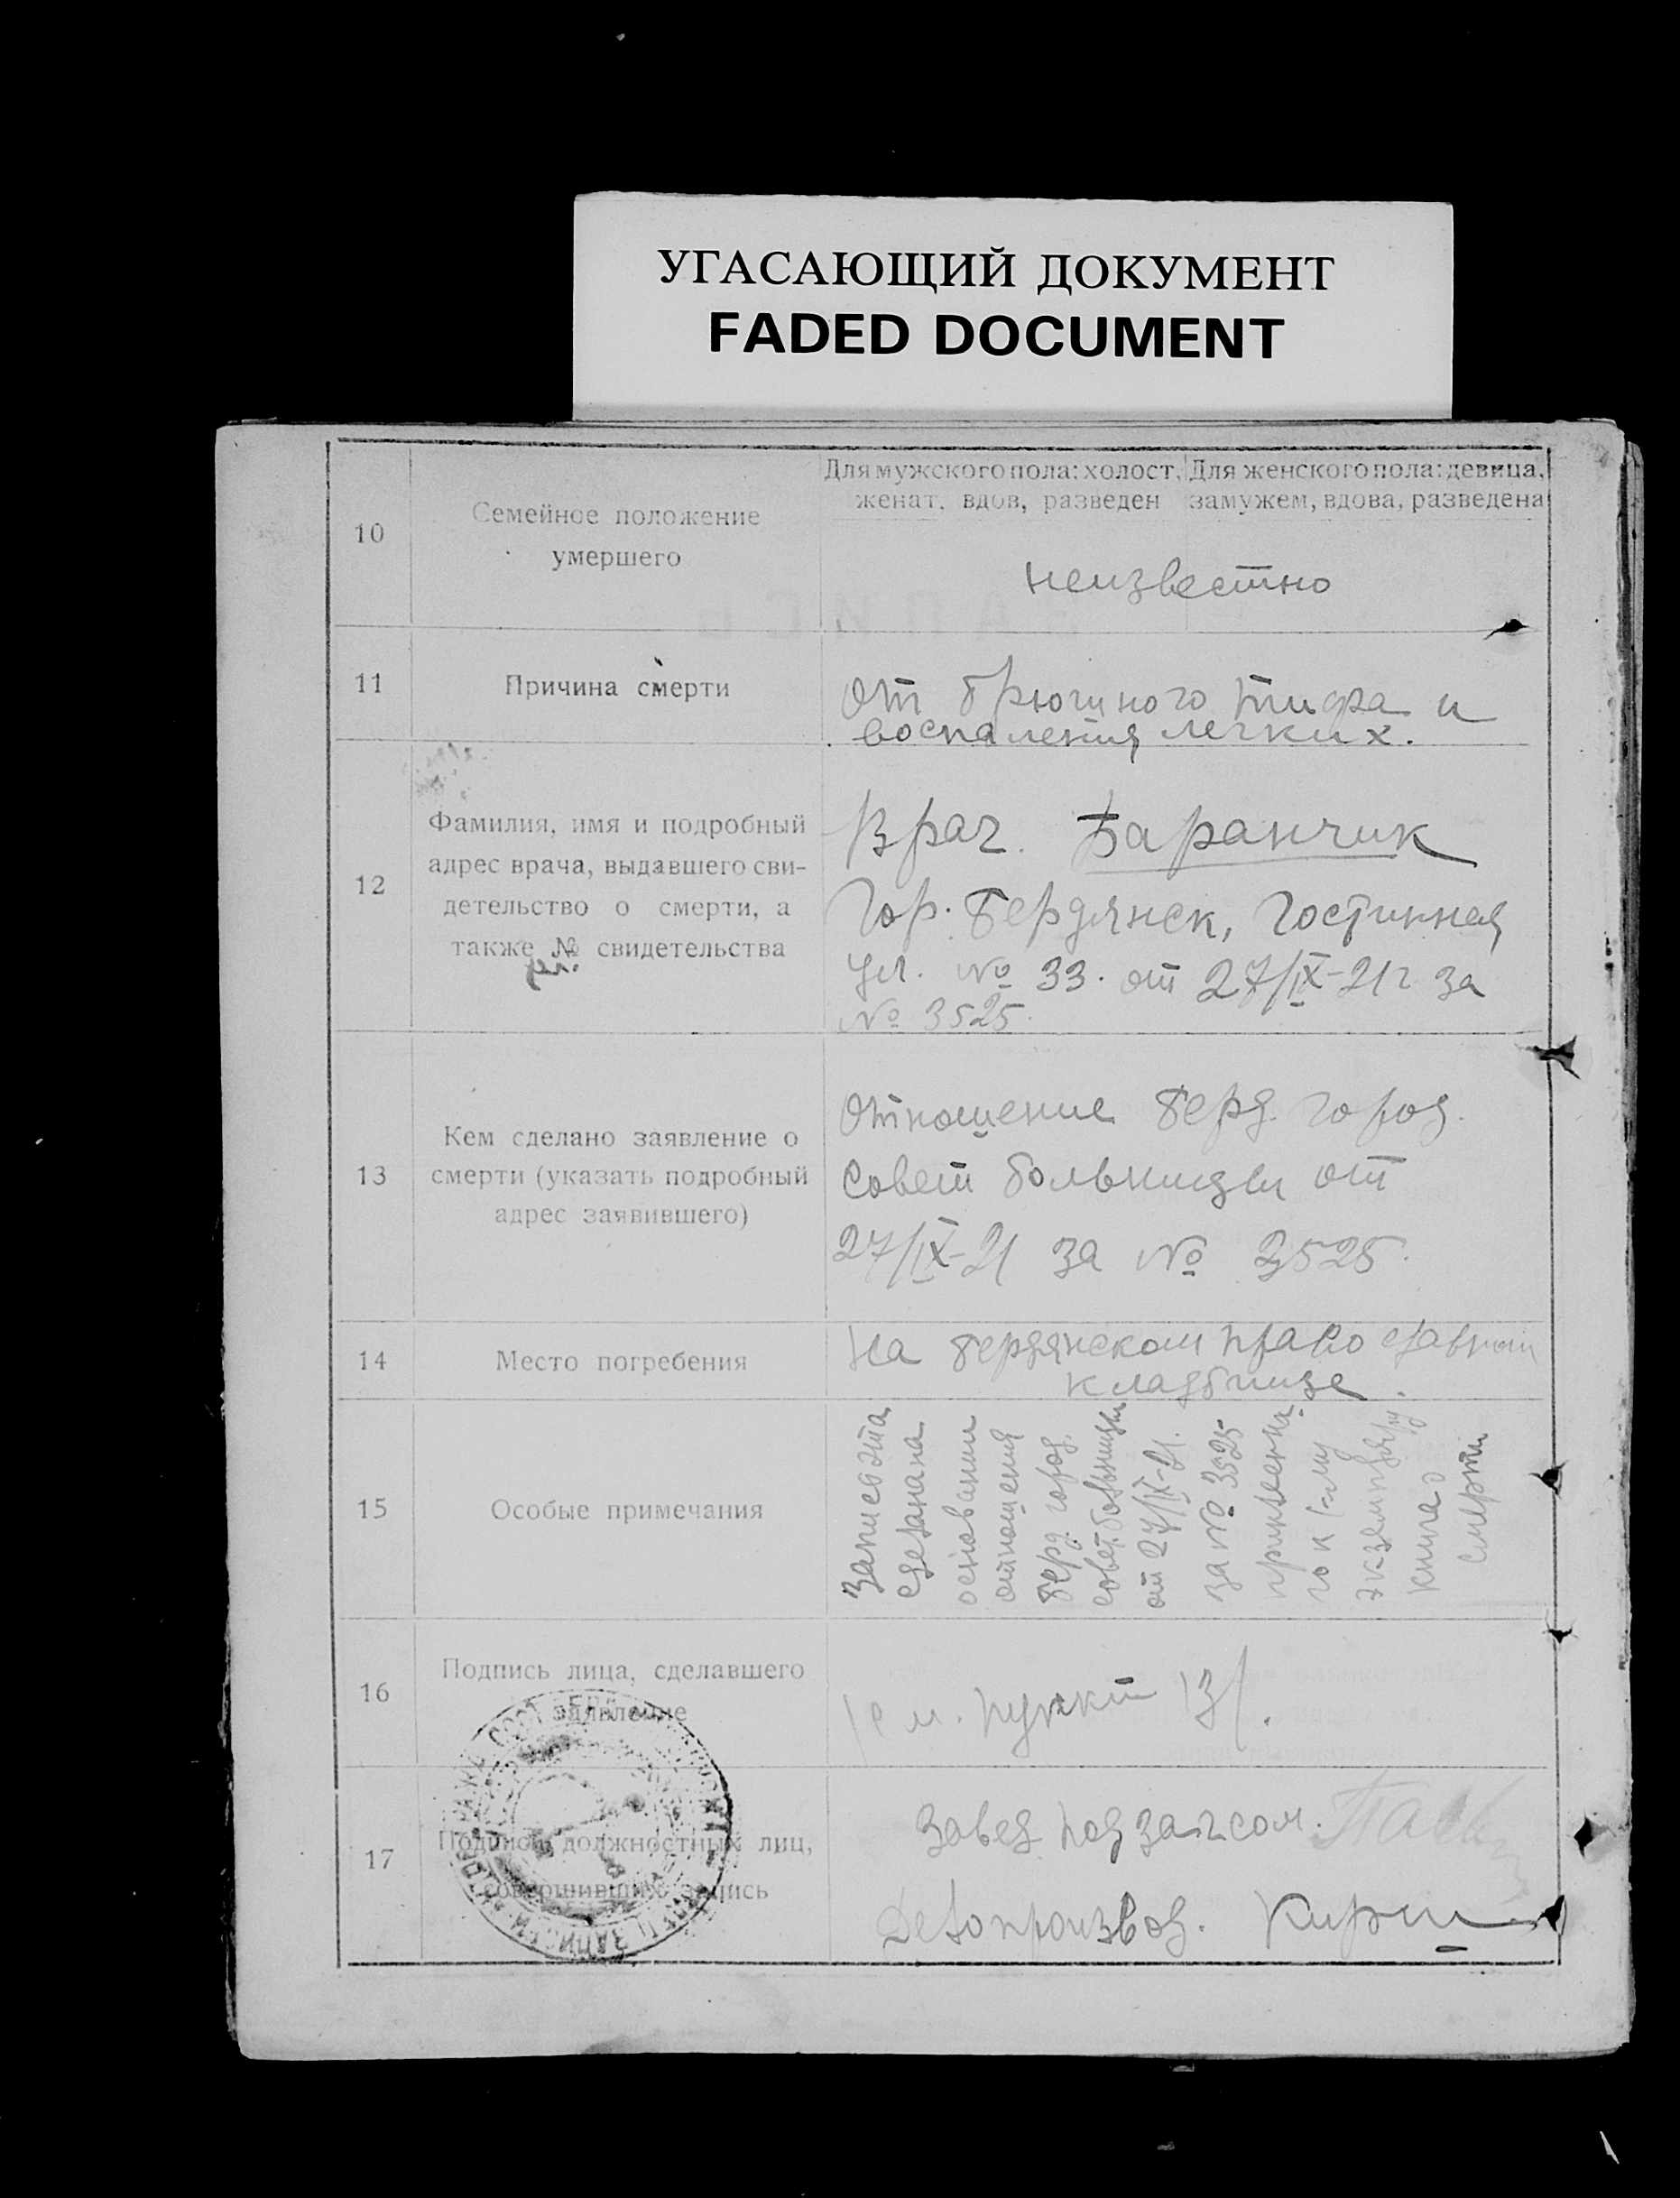 УГАСАЮЩИЙ ДОКУМЕНТ
FADED DOCUMENT
10
Семейное положение
умершего
Для мужского пола: холост,
женат, вдов, разведен
Для женского пола: девица,
замужем, вдова, разведена
неизвестно
11
Причина смерти
От брюшного тифа и
воспаления легких.
12
Фамилия, имя и подробный
адрес врача, выдавшего сви-
детельство о смерти, а
также № свидетельства
Врач. Баранчик
Гор. Бердянск, Гостинная
ул. № 33. от 27/IX-21 г за
№ 3525.
13
Кем сделано заявление о
смерти (указать подробный
адрес заявившего)
Отношение Берд. город.
Совет больницы от
27/IX-21 за № 3525.
14
Место погребения
На Бердянском православном
кладбище.
15
Особые примечания
Запись эта
сделана на
основании
отношения
Берд. город.
совет больницы
от 27/IX-21.
за № 3525
го к 1-му
экземпляру
книга о
смерти
16
Подпись лица, сделавшего
заявление
/см. пункт 13/.
17
Подписи должностных лиц,
совершивших запись
Завед. подзагсом.
Делопроизвод.